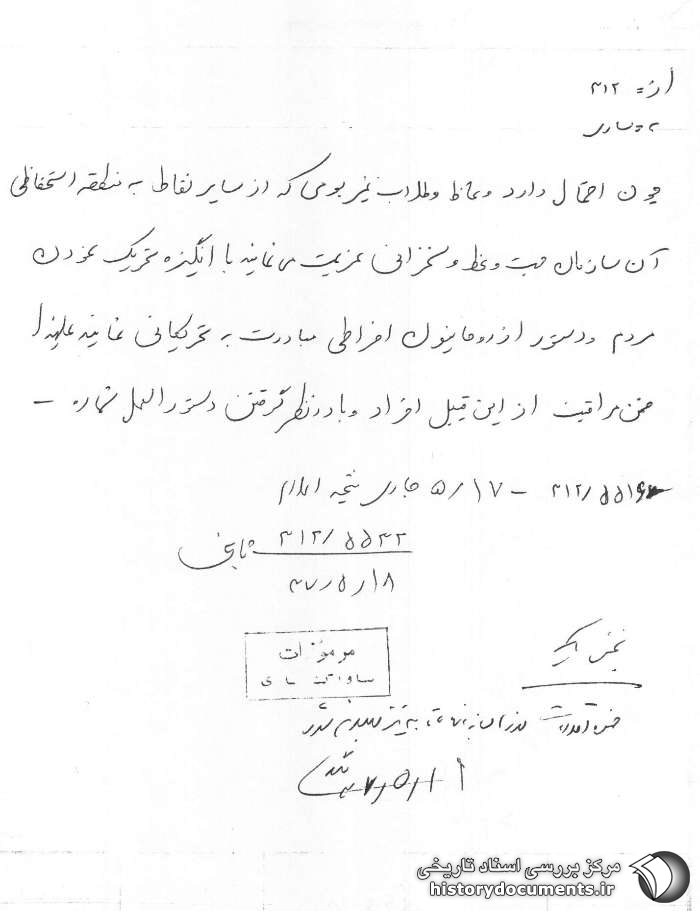 از = ۳۱۲
به = ساری
چون احتمال دارد وعاظ و طلاب غیر بومی که از سایر نقاط به منطقه استحفاظی
آن سازمان جهت وعظ و سخنرانی عزیمت می نمایند با انگیزه تحریک نمودن
مردم و دستور از روحانیون افراطی مبادرت به تحریکاتی نمایند علیهذا
ضمن مراقبت از این قبیل افراد و با در نظر گرفتن دستورالعمل شماره –
۳۱۲/۵۵۱۶ – ۵/۱۷ جاری نتیجه اعلام
۳۱۲/۵۵۳۲ ثابتی
۴۷/۵/۱۸
بخش
مرموزات
ساواک ساری
۴۷/۵/۲۱
مرکز بررسی اسناد تاریخی
historydocuments.ir